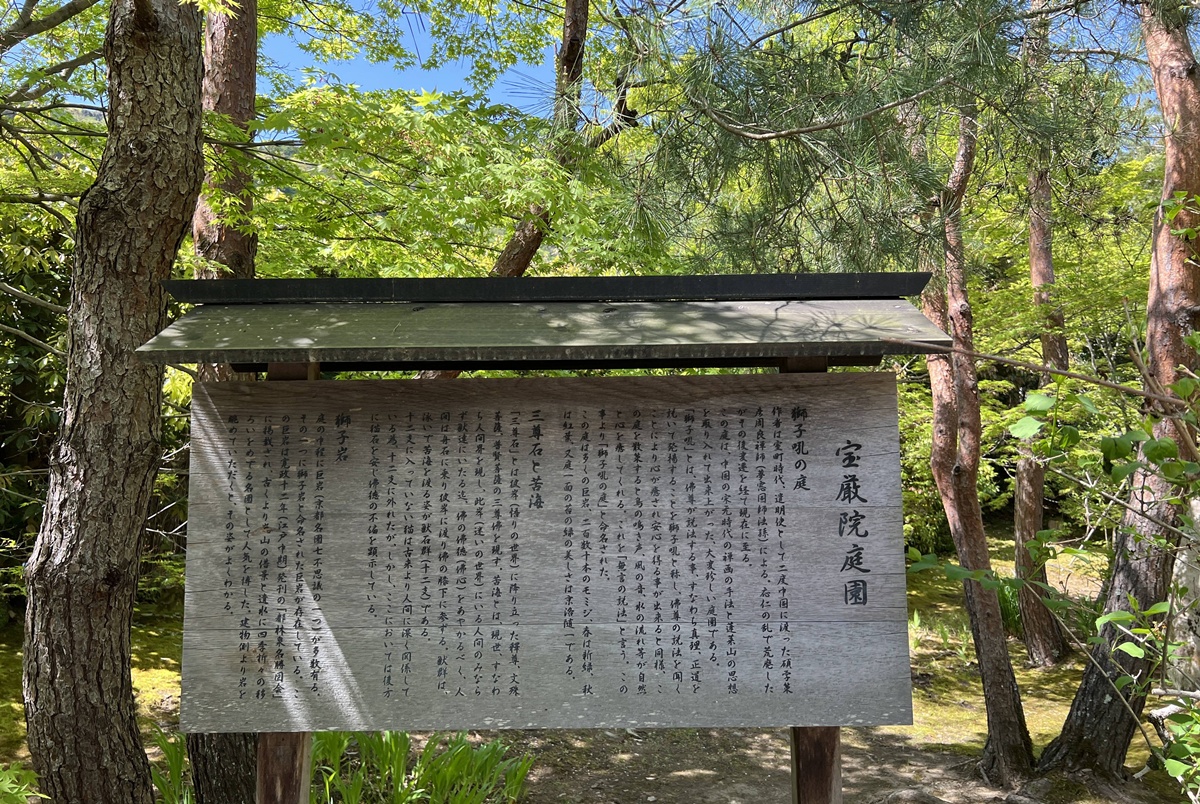 宝厳院庭園
獅子吼の庭
作者は室町時代、遣明使として二度中国に渡った碩学策
彦周良禅師（夢窓国師法孫）による。応仁の乱で荒廃した
がその後変遷を経て現在に至る。
この庭は、中国の宋元時代の禅画の手法と蓬莱山の思想
を取り入れて出来上がった、大変珍しい庭園である。
「獅子吼」とは、佛尊が説法する事、すなわち真理、正道を
説いて発揚することを獅子吼と称し、佛尊の説法を聞く
ことにより心が癒され安心を得る事が出来ると同様、こ
の庭を散策すると鳥の鳴き声、風の音、水の流れ等が自然
と心を癒してくれる。これを「無言の説法」と言う。この
事より「獅子吼の庭」と命名された。
この庭は多くの巨岩、二百数十本のモミジ、春は新緑、秋
は紅葉、又庭一面の苔の緑の美しさは京洛随一である。
三尊石と苦海
「三尊石」は彼岸（悟りの世界）に降り立った釋尊、文殊
菩薩、普賢菩薩の三尊佛を現す。苦海とは、現世、すなわ
ち人間界を現し、此岸（迷いの世界）にいる人間のみなら
ず獣達にいたる迄、佛の佛徳（佛心）をあやかるべく、人
間は舟石に乗り彼岸に渡り佛の膝下に参ずる。獣群は、
泳いで苦海を渡る姿が獣石群（十二支）である。
十二支に入っていない猫は古来より人間に深く関係して
いる為、十二支に外れたが、しかし、ここにおいては後方
に猫石を安じ佛徳の不偏を顕示している。
獅子岩
庭の中程に巨岩（京都名園七不思議の一つ）が多数有る。
その一つに獅子岩と命名された巨岩が存在している。こ
の巨岩は寛政十一年（江戸中期）発刊の「都林泉名勝図会」
に掲載され、古くより嵐山の借景と遣水に四季折々の移
ろいをめでる名園として人気を博した。建物側より岩を
眺めていただくと、その姿がよくわかる。